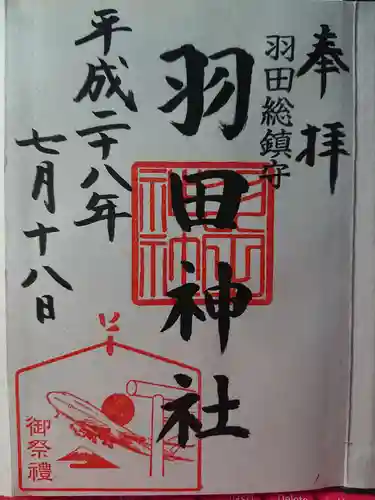 奉拝
羽田総鎮守
羽田神社
平成二十八年
七月十八日
羽田神社
御祭禮